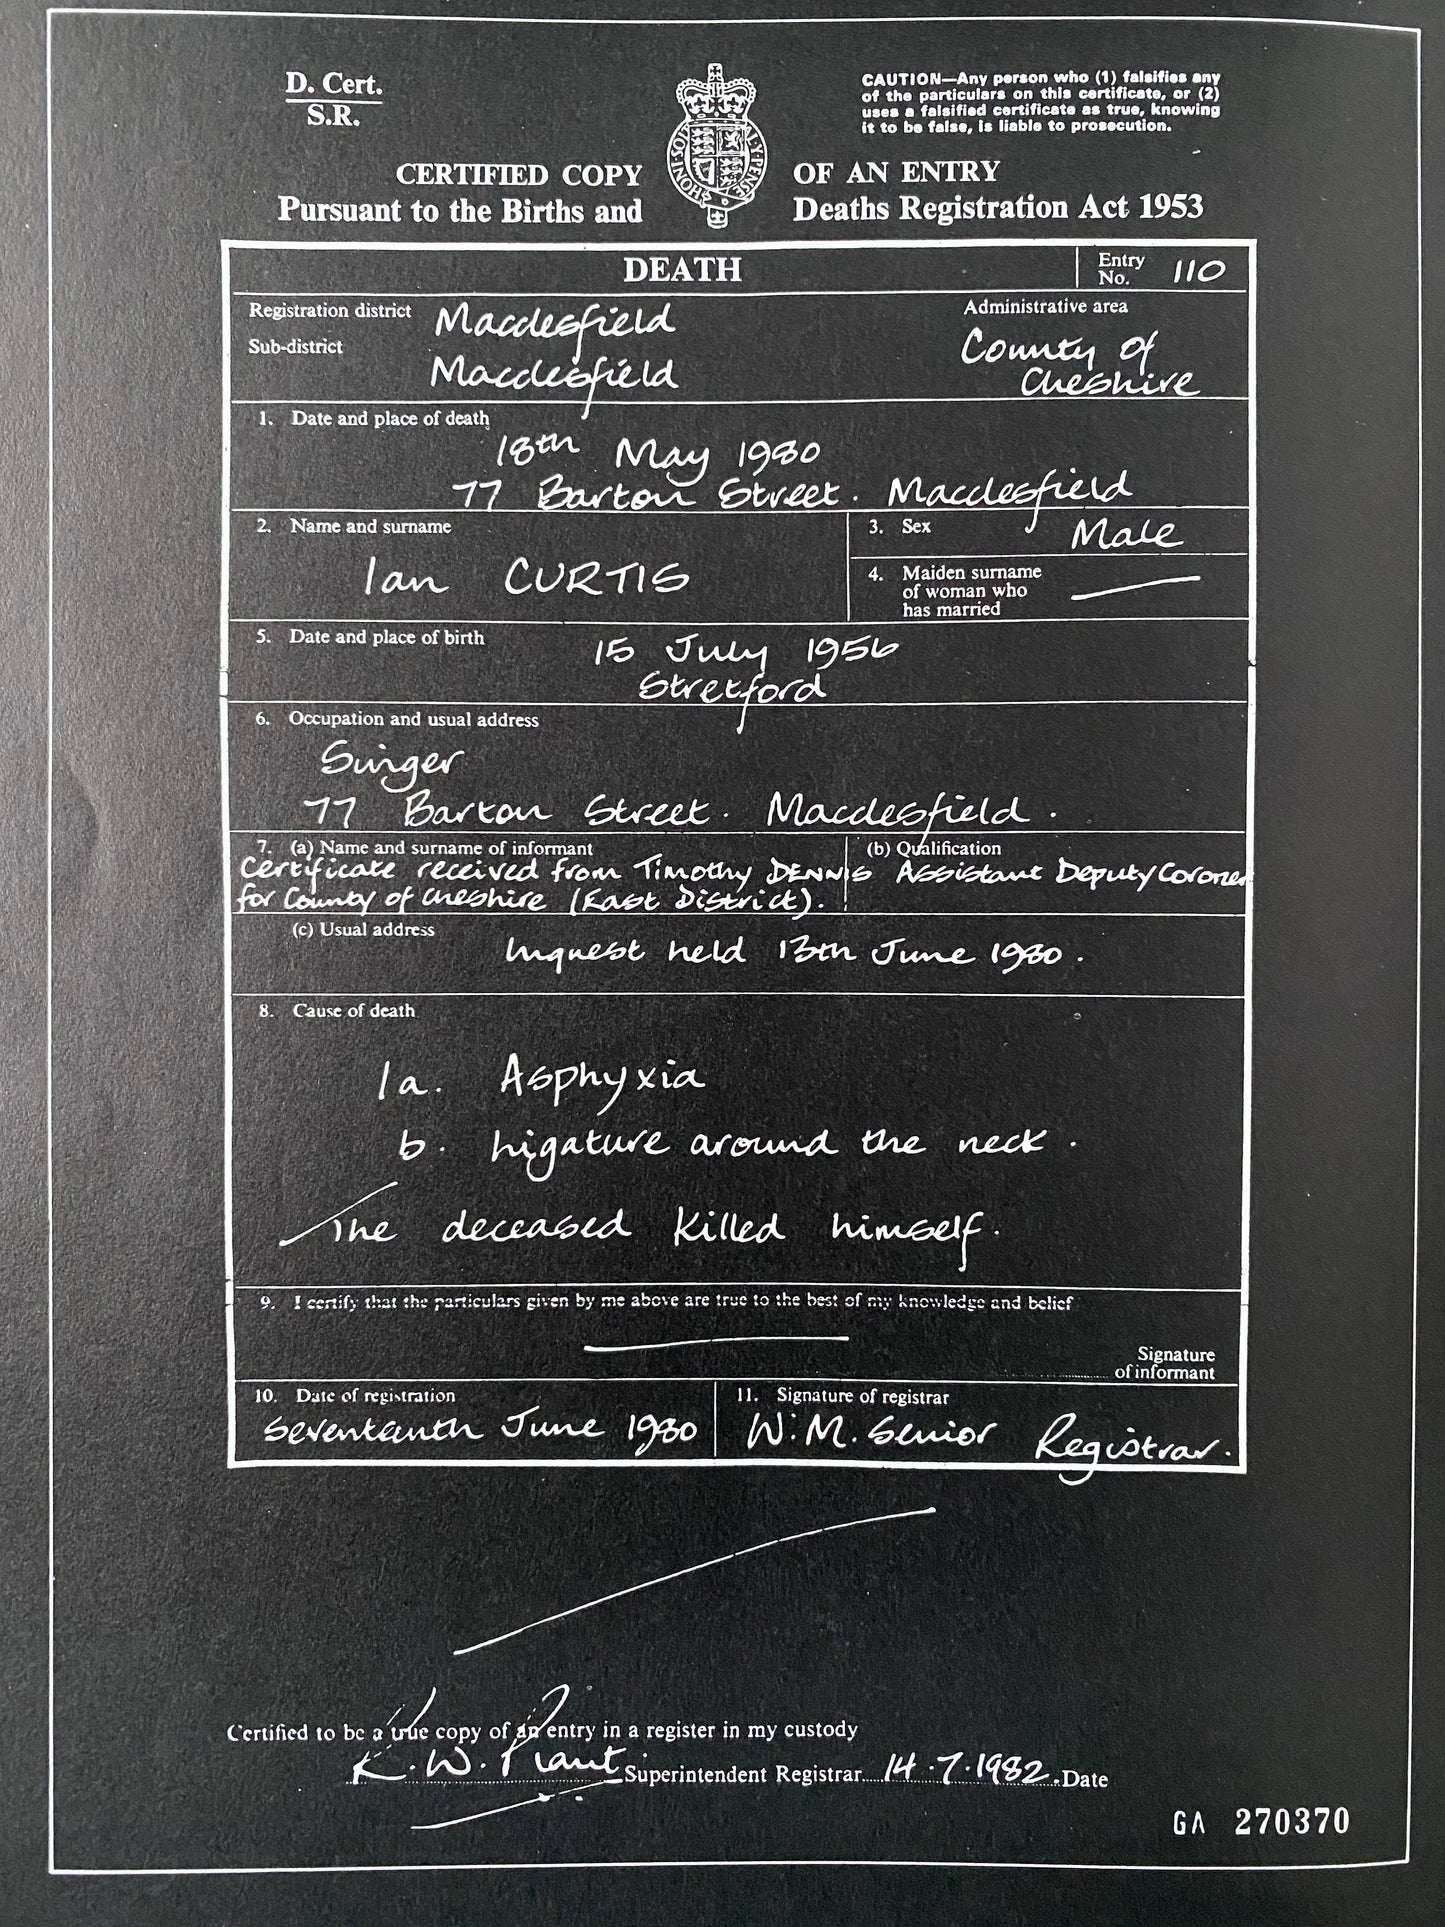 D. Cert.
S.R.
CAUTION—Any person who (1) falsifies any
of the particulars on this certificate, or (2)
uses a falsified certificate as true, knowing
it to be false, is liable to prosecution.
HONI·SOIT Y·PENSE
CERTIFIED COPY OF AN ENTRY
Pursuant to the Births and Deaths Registration Act 1953
DEATH
Entry No. 110
Registration district Macclesfield
Administrative area
Sub-district Macclesfield
County of
Cheshire
1. Date and place of death
18th May 1980
77 Barton Street. Macclesfield
2. Name and surname
Ian CURTIS
3. Sex Male
4. Maiden surname
of woman who
has married
5. Date and place of birth
15 July 1956
Stretford
6. Occupation and usual address
Singer
77 Barton Street. Macclesfield.
7. (a) Name and surname of informant
(b) Qualification
Certificate received from Timothy DENNIS Assistant Deputy Coroner
for County of Cheshire (East District).
(c) Usual address
Inquest held 13th June 1980.
8. Cause of death
1a. Asphyxia
b. Ligature around the neck.
The deceased killed himself.
9. I certify that the particulars given by me above are true to the best of my knowledge and belief
Signature
of informant
10. Date of registration
Seventeenth June 1980
11. Signature of registrar
W.M. Senior Registrar.
Certified to be a true copy of an entry in a register in my custody
K.W. Plant Superintendent Registrar 14.7.1982. Date
GA 270370